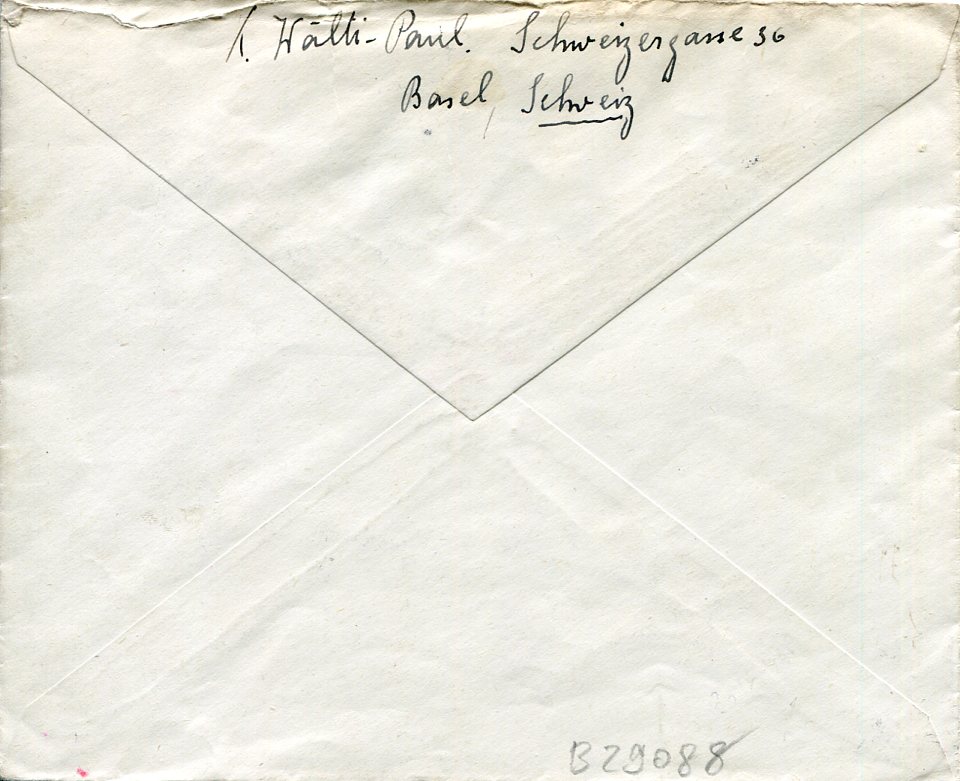 Wälti-Paul. Schweizergasse 36
Basel, Schweiz
B29088